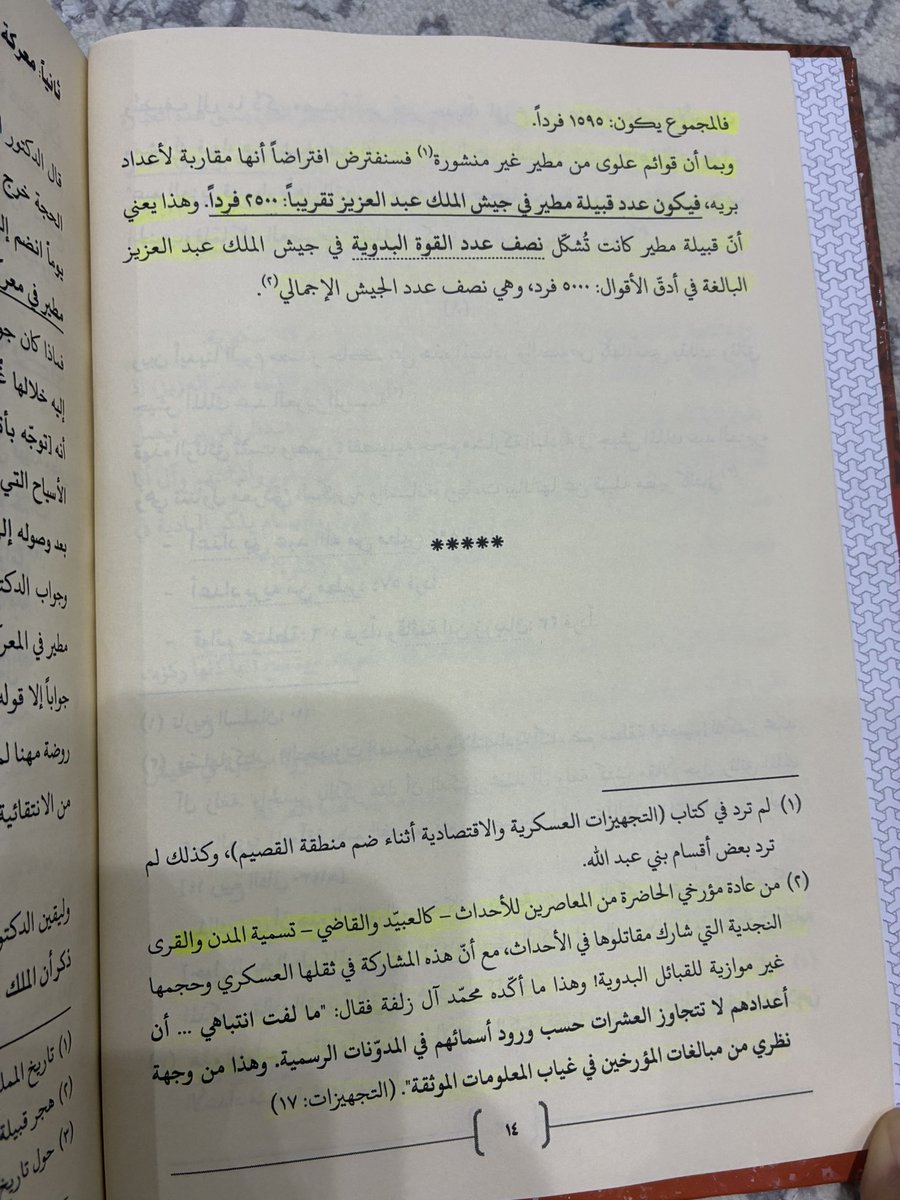 فالمجموع يكون: ١٥٩٥ فرداً.
وبما أن قوائم علوى من مطير غير منشورة(١) فسنفترض افتراضاً أنها مقاربة لأعداد
بريه، فيكون عدد قبيلة مطير في جيش الملك عبد العزيز تقريباً: ٢٥٠٠ فرداً. وهذا يعني
أنّ قبيلة مطير كانت تُشكّل نصف عدد القوة البدوية في جيش الملك عبد العزيز
البالغة في أدقّ الأقوال: ٥٠٠٠ فرد، وهي نصف عدد الجيش الإجمالي(٢).
*****
(١) لم ترد في كتاب (التجهيزات العسكرية والاقتصادية أثناء ضم منطقة القصيم)، وكذلك لم
ترد بعض أقسام بني عبد الله.
(٢) من عادة مؤرخي الحاضرة من المعاصرين للأحداث - كالعبيّد والقاضي - تسمية المدن والقرى
النجدية التي شارك مقاتلوها في الأحداث، مع أنّ هذه المشاركة في ثقلها العسكري وحجمها
غير موازية للقبائل البدوية! وهذا ما أكّده محمّد آل زلفة فقال: "ما لفت انتباهي ... أن
أعدادهم لا تتجاوز العشرات حسب ورود أسمائهم في المدوّنات الرسمية. وهذا من وجهة
نظري من مبالغات المؤرخين في غياب المعلومات الموثقة". (التجهيزات: ١٧)
١٤
ثانياً: معركة
قال الدكتور
الحجة خرج
يوماً انضم إل
مطير في معر
فماذا كان جو
إليه خلالها
أنه [توجّه بأ
الأسياح التي
بعد وصوله إلى
وجواب الدكت
مطير في المعر
جواباً إلا قوله
روضة مهنا لم
من الانتقائية
وليقين الدكتو
ذكر أن الملك
(١) تاريخ المم
(٢) هجر قبيلة
(٣) حول تاريخ